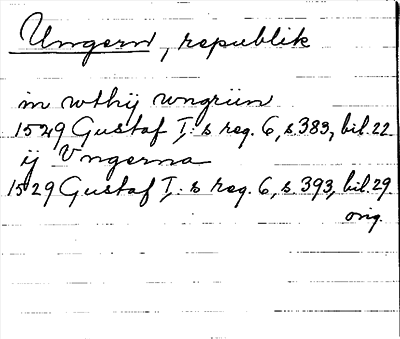 Ungern, republik
in wthij wngrün
1529 Gustaf I:s reg. 6, s. 383, bil. 22
ij Vngerna
1529 Gustaf I:s reg. 6, s. 393, bil. 29
orig.